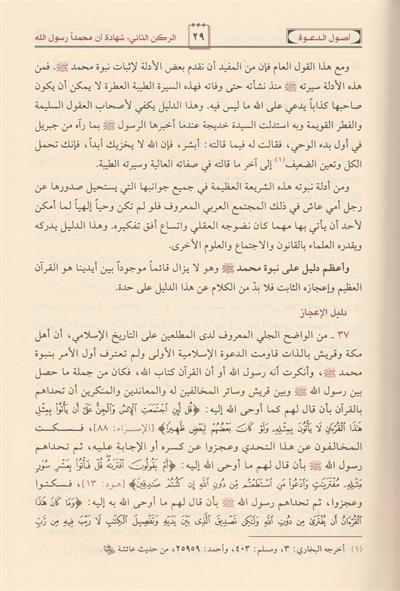 أصول الدعوة
٢٩
الركن الثاني: شهادة أن محمداً رسول الله
ومع هذا القول العام فإن من المفيد أن نقدم بعض الأدلة لإثبات نبوة محمد ﷺ. فمن
هذه الأدلة سيرته ﷺ منذ نشأته حتى وفاته فهذه السيرة الطيبة العطرة لا يمكن أن يكون
صاحبها كذاباً يدعي على الله ما ليس فيه. وهذا الدليل يكفي لأصحاب العقول السليمة
والفطر القويمة وبه استدلت السيدة خديجة عندما أخبرها الرسول ﷺ بما رآه من جبريل
في أول بدء الوحي، فقالت له فيما قالته: أبشر، فإن الله لا يخزيك أبداً، فإنك تحمل
الكل وتعين الضعيف(١) إلى آخر ما قالته في صفاته العالية وسيرته الطيبة.
ومن أدلة نبوته هذه الشريعة العظيمة في جميع جوانبها التي يستحيل صدورها عن
رجل أمي عاش في ذلك المجتمع العربي المعروف فلو لم تكن وحياً إلهياً لما أمكن
لأحد أن يأتي بها مهما كان نضوجه العقلي واتساع أفق تفكيره. وهذا الدليل يدركه
ويقدره العلماء بالقانون والاجتماع والعلوم الأخرى.
وأعظم دليل على نبوة محمد ﷺ وهو لا يزال قائماً موجوداً بين أيدينا هو القرآن
العظيم وإعجازه الثابت فلا بدّ من الكلام عن هذا الدليل على حدة.
دليل الإعجاز
٣٧ ـ من الواضح الجلي المعروف لدى المطلعين على التاريخ الإسلامي، أن أهل
مكة وقريش بالذات قاومت الدعوة الإسلامية الأولى ولم تعترف أول الأمر بنبوة
محمد ﷺ، وأنكرت أنه رسول الله أو أن القرآن كتاب الله، فكان من جملة ما حصل
بين رسول الله ﷺ وبين قريش وسائر المخالفين له والمعاندين والمنكرين أن تحداهم
بالقرآن بأن قال لهم كما أوحى الله إليه: ﴿قُل لَّئِنِ ٱجۡتَمَعَتِ ٱلۡإِنسُ وَٱلۡجِنُّ عَلَىٰٓ أَن يَأۡتُواْ بِمِثۡلِ
هَٰذَا ٱلۡقُرۡءَانِ لَا يَأۡتُونَ بِمِثۡلِهِۦ وَلَوۡ كَانَ بَعۡضُهُمۡ لِبَعۡضٖ ظَهِيرٗا﴾ [الإسراء: ٨٨]، فسكت
المخالفون عن هذا التحدي وعجزوا عن كسره أو الإجابة عليه، ثم تحداهم
رسول الله ﷺ بأن قال لهم ما أوحى الله إليه: ﴿أَمۡ يَقُولُونَ ٱفۡتَرَىٰهُۖ قُلۡ فَأۡتُواْ بِعَشۡرِ سُوَرٖ
مِّثۡلِهِۦ مُفۡتَرَيَٰتٖ وَٱدۡعُواْ مَنِ ٱسۡتَطَعۡتُم مِّن دُونِ ٱللَّهِ إِن كُنتُمۡ صَٰدِقِينَ﴾ [هود: ١٣]، فسكتوا
وعجزوا، ثم تحداهم رسول الله ﷺ بأن قال لهم ما أوحى الله به إليه: ﴿وَمَا كَانَ هَٰذَا
ٱلۡقُرۡءَانُ أَن يُفۡتَرَىٰ مِن دُونِ ٱللَّهِ وَلَٰكِن تَصۡدِيقَ ٱلَّذِي بَيۡنَ يَدَيۡهِ وَتَفۡصِيلَ ٱلۡكِتَٰبِ لَا رَيۡبَ فِيهِ مِن رَّبِّ
(١) أخرجه البخاري: ٣، ومسلم: ٤٠٣، وأحمد: ٢٥٩٥٩، من حديث عائشة